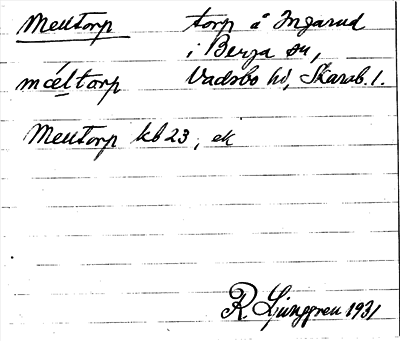 Melltorp torp å Ingarud
i Berga sn,
mæltarp Vadsbo hd, Skarab. l.
Melltorp kb 23, ek
R. Ljunggren 1931